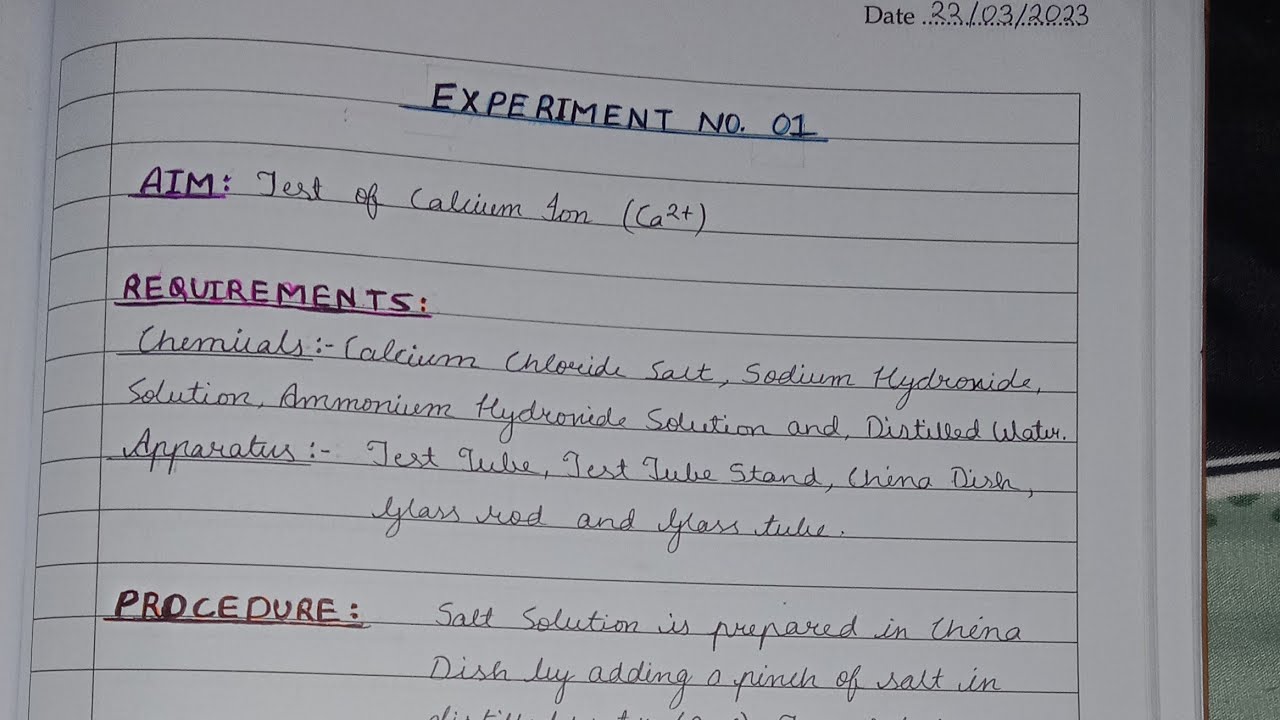 Date 23/03/2023
EXPERIMENT NO. 01
AIM: Test of Calcium Ion (Ca²⁺)
REQUIREMENTS:
Chemicals:- Calcium Chloride Salt, Sodium Hydroxide,
Solution, Ammonium Hydroxide Solution and, Distilled Water.
Apparatus:- Test Tube, Test Tube Stand, China Dish,
Glass rod and Glass tube.
PROCEDURE: Salt Solution is prepared in China
Dish by adding a pinch of salt in